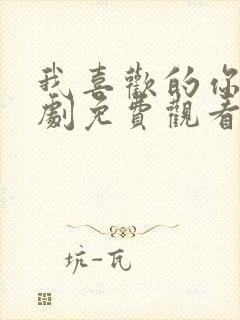 我喜歡的你
劇免費觀看
坑-瓦